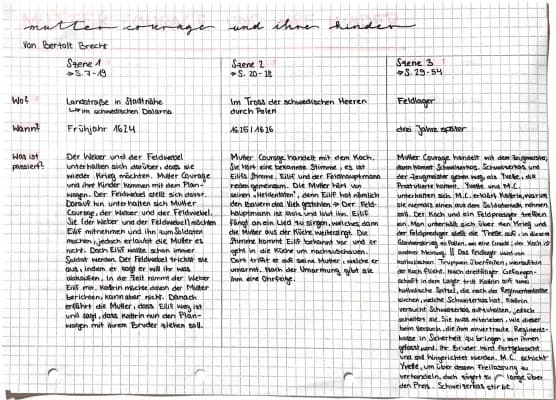 mutter courage und ihre kinder
Von Bertolt Brecht
Szene 1
→ S. 7-19
Szene 2
→ S. 20-28
Szene 3
→ S. 29-54
Wo?
Landstraße in Stadtnähe
↳ im schwedischen Dalarna
Im Tross der schwedischen Heeren
durch Polen
Feldlager
Wann?
Frühjahr 1624
1625/1626
drei Jahre später
Was ist
passiert?
Der Werber und der Feldwebel
unterhalten sich darüber, dass sie
wieder Krieg möchten. Mutter Courage
und ihre Kinder kommen mit dem Plan-
wagen. Der Feldwebel stellt sich davor.
Darauf hin unterhalten sich Mutter
Courage, der Werber und der Feldwebel.
Sie (der Werber und der Feldwebel) möchten
Eilif mitnehmen und ihn zum Soldaten
machen, jedoch erlaubt die Mutter es
nicht. Doch Eilif wollte schon immer
Soldat werden. Der Feldwebel trickst sie
aus, indem er sagt er will ihr was
abkaufen. In der Zeit nimmt der Werber
Eilif mit. Kattrin möchte davon der Mutter
berichten, kann aber nicht. Danach
erfährt die Mutter, dass Eilif weg ist
und sagt, dass Kattrin nun den Plan-
wagen mit ihrem Bruder ziehen soll.
Mutter Courage handelt mit dem Koch.
Sie hört eine bekannte Stimme, es ist
Eilifs Stimme. Eilif und der Feldhauptmann
reden gemeinsam. Die Mutter hört von
seinen „Heldentaten", denn Eilif hat nämlich
den Bauern das Vieh gestohlen → Der Feld-
hauptmann ist stolz und lobt ihn. Eilif
fängt an ein Lied zu singen, welches dann
die Mutter aus der Küche weitersingt. Die
Stimme kommt Eilif bekannt vor und er
geht in die Küche um nachzuschauen.
Dort trifft er auf seine Mutter, welche er
umarmt. Nach der Umarmung gibt sie
ihm eine Ohrfeige.
Mutter Courage handelt mit dem Zeugmeister,
dann kommt Schweizerkas. Schweizerkas und
der Zeugmeister gehen weg, als Yvette, die
Prostituierte kommt. Yvette und M.C.
unterhalten sich. M.C. erklärt Kattrin, warum
sie niemals einen aus dem Soldatenvolk nehmen
soll. Der Koch und ein Feldprediger treffen
ein. Man unterhält sich über den Krieg und
der Feldprediger stellt die These auf, in diesem
Glaubenskrieg zu fallen, sei eine Gnade; der Koch ist
anderer Meinung. || Das Feldlager wird von
katholischen Truppen überfallen, woraufhin
der Koch flieht. Nach dreitägiger Gefangen-
schaft in dem Lager tritt Kattrin auf zwei
katholische Spitzel, die nach der Regimentskasse
suchen, welche Schweizerkas hat. Kattrin
versucht Schweizerkas aufzuhalten, jedoch
scheitert sie. Sie muss miterleben, wie dieser
beim Versuch, die ihm anvertraute Regiments-
kasse in Sicherheit zu bringen, von ihnen
gefasst wird. Ihr Bruder wird fortgebracht
und soll hingerichtet werden. M.C. schickt
Yvette, um über dessen Freilassung zu
verhandeln, doch zögert zu lange über
den Preis. Schweizerkas stirbt.